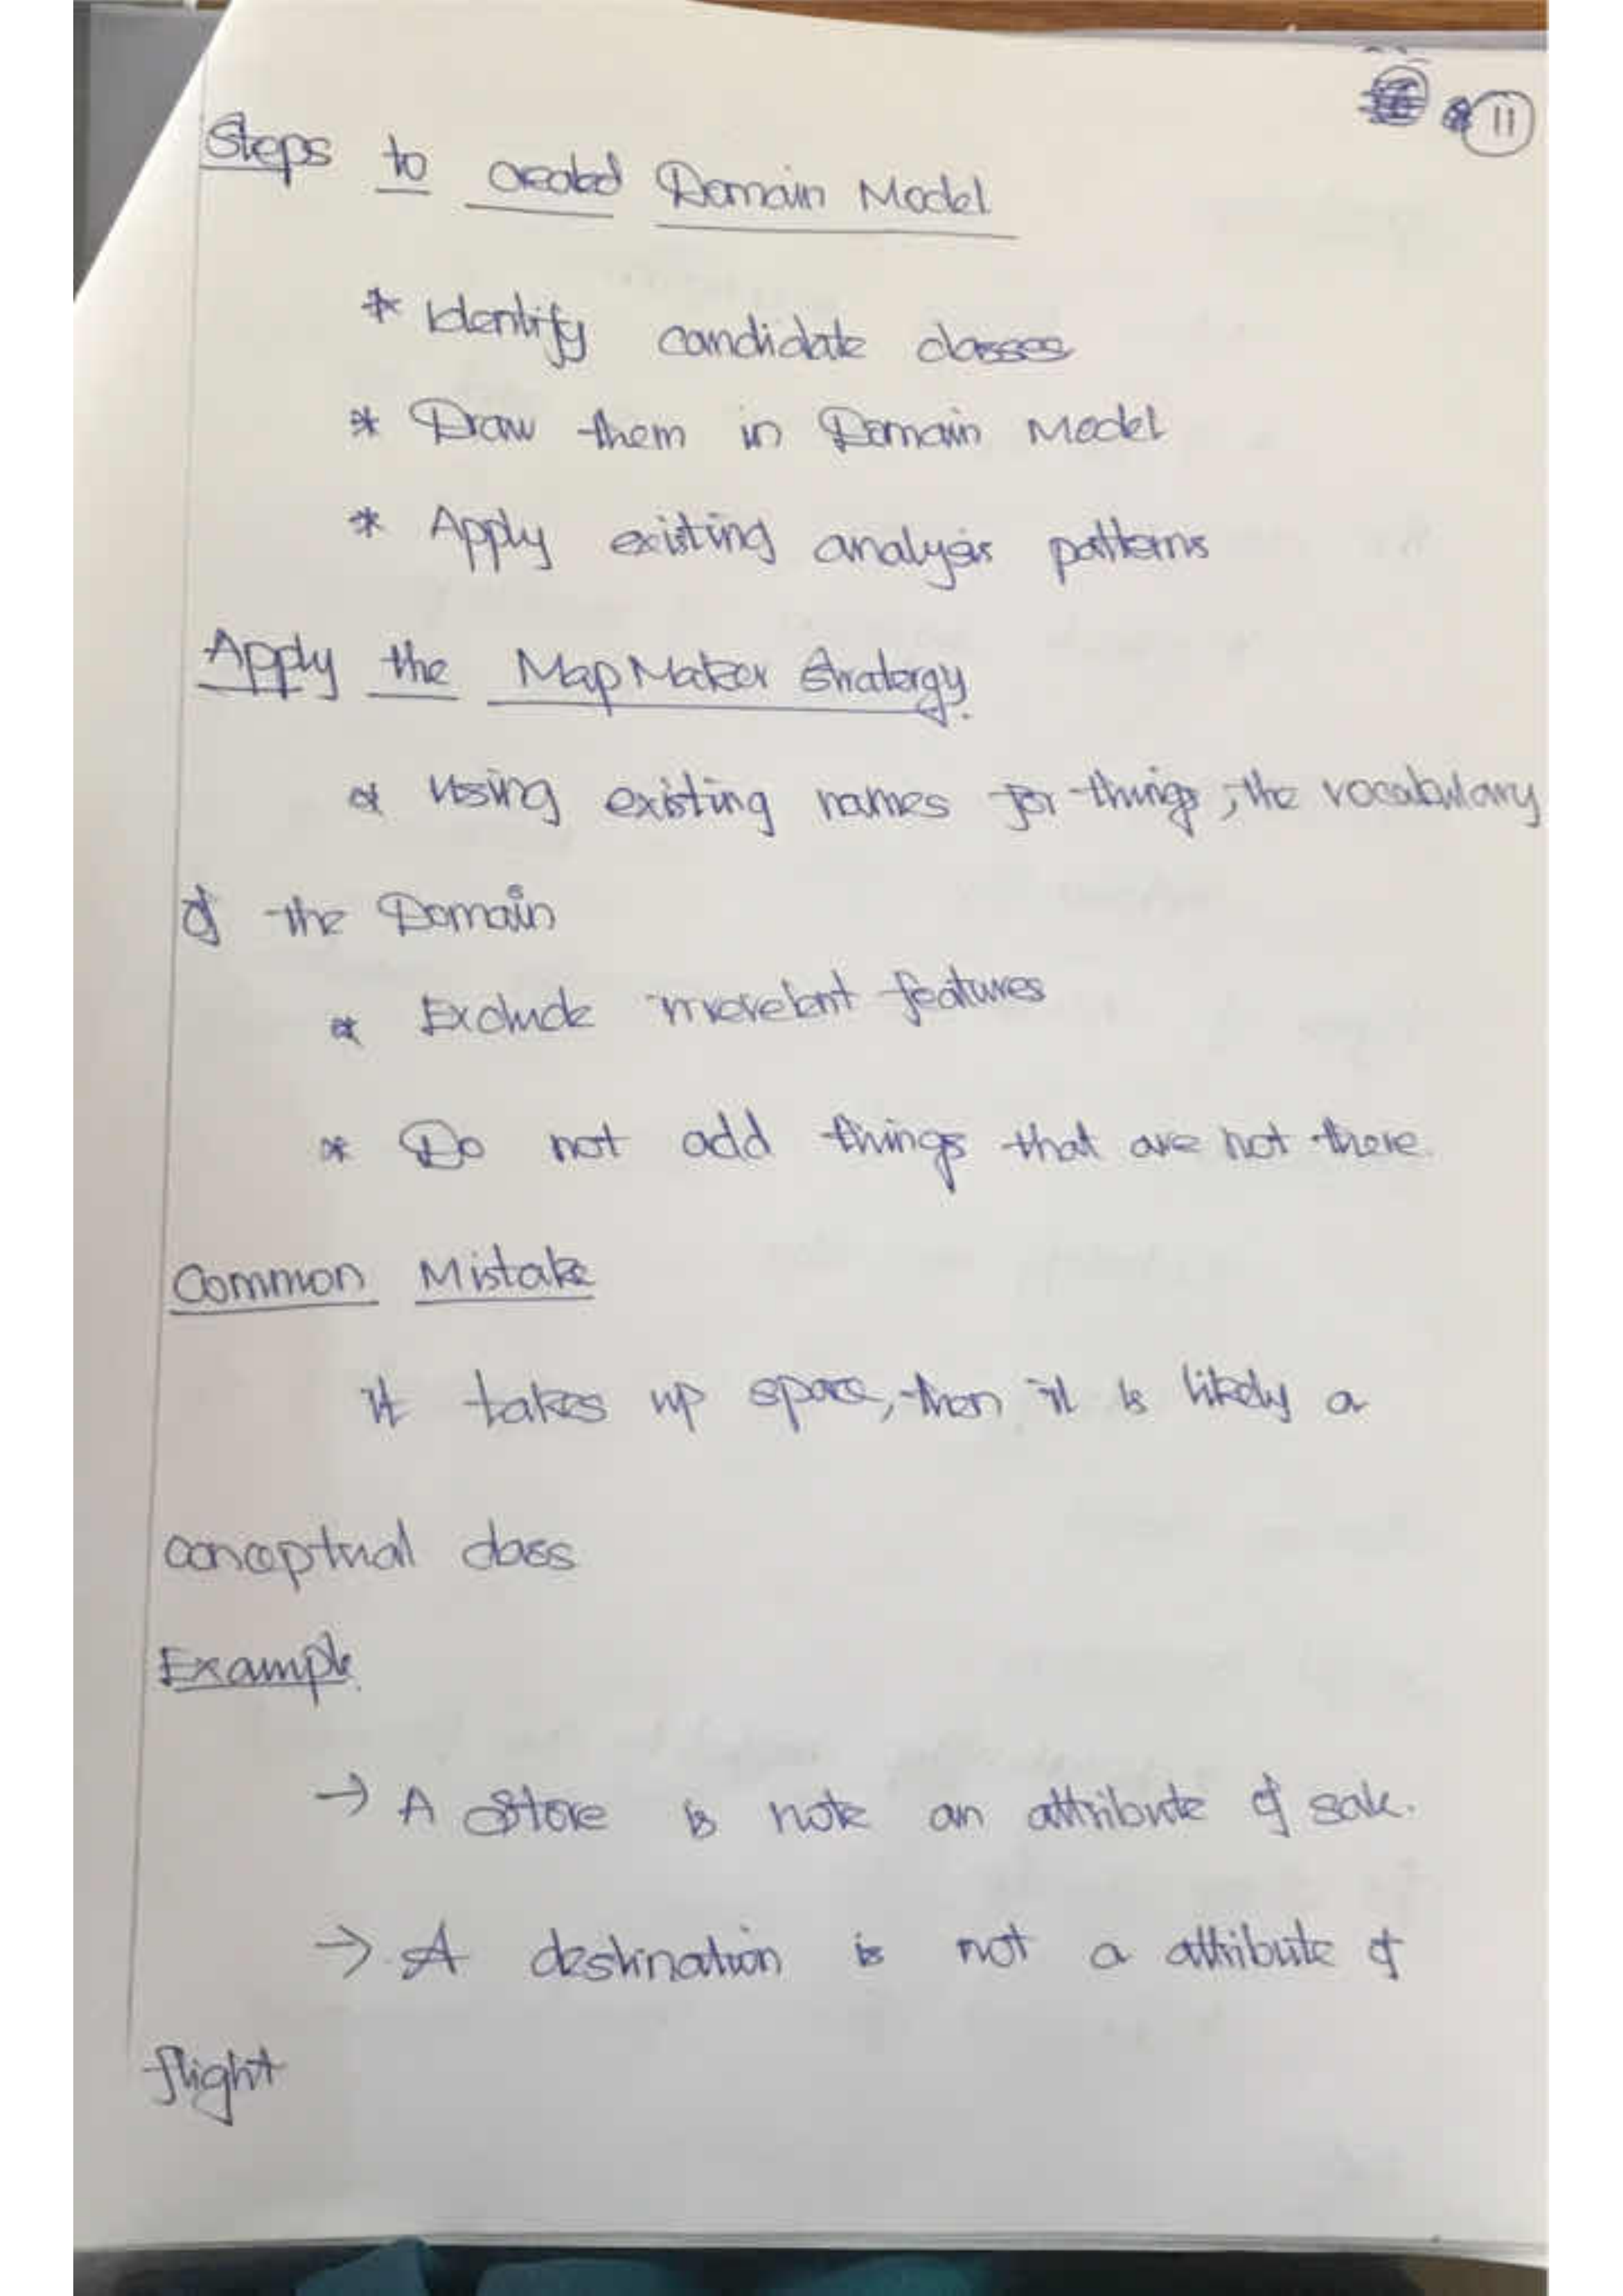 11
Steps to created Domain Model
* Identify candidate classes
* Draw them in Domain Model
* Apply existing analysis patterns
Apply the MapMaker Stratergy.
* Using existing names for things, the vocabulary
of the Domain
* Exclude irrerelent features
* Do not add things that are not there.
Common Mistake
it takes up space, then it is likely a
conceptual class
Example.
→ A Store is note an attribute of sale.
→ A destination is not a attribute of
flight